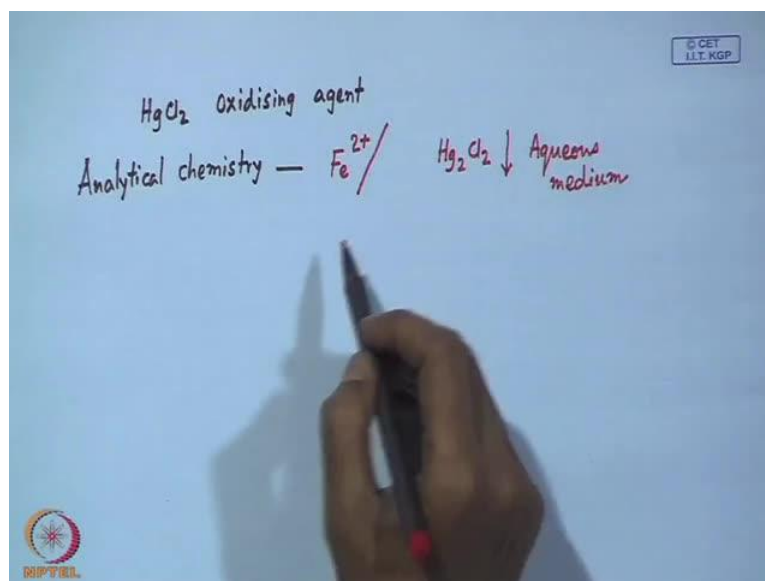 © CET
I.I.T. KGP
HgCl₂ Oxidising agent
Analytical chemistry — Fe²⁺/ Hg₂Cl₂ ↓ Aqueous
medium
NPTEL